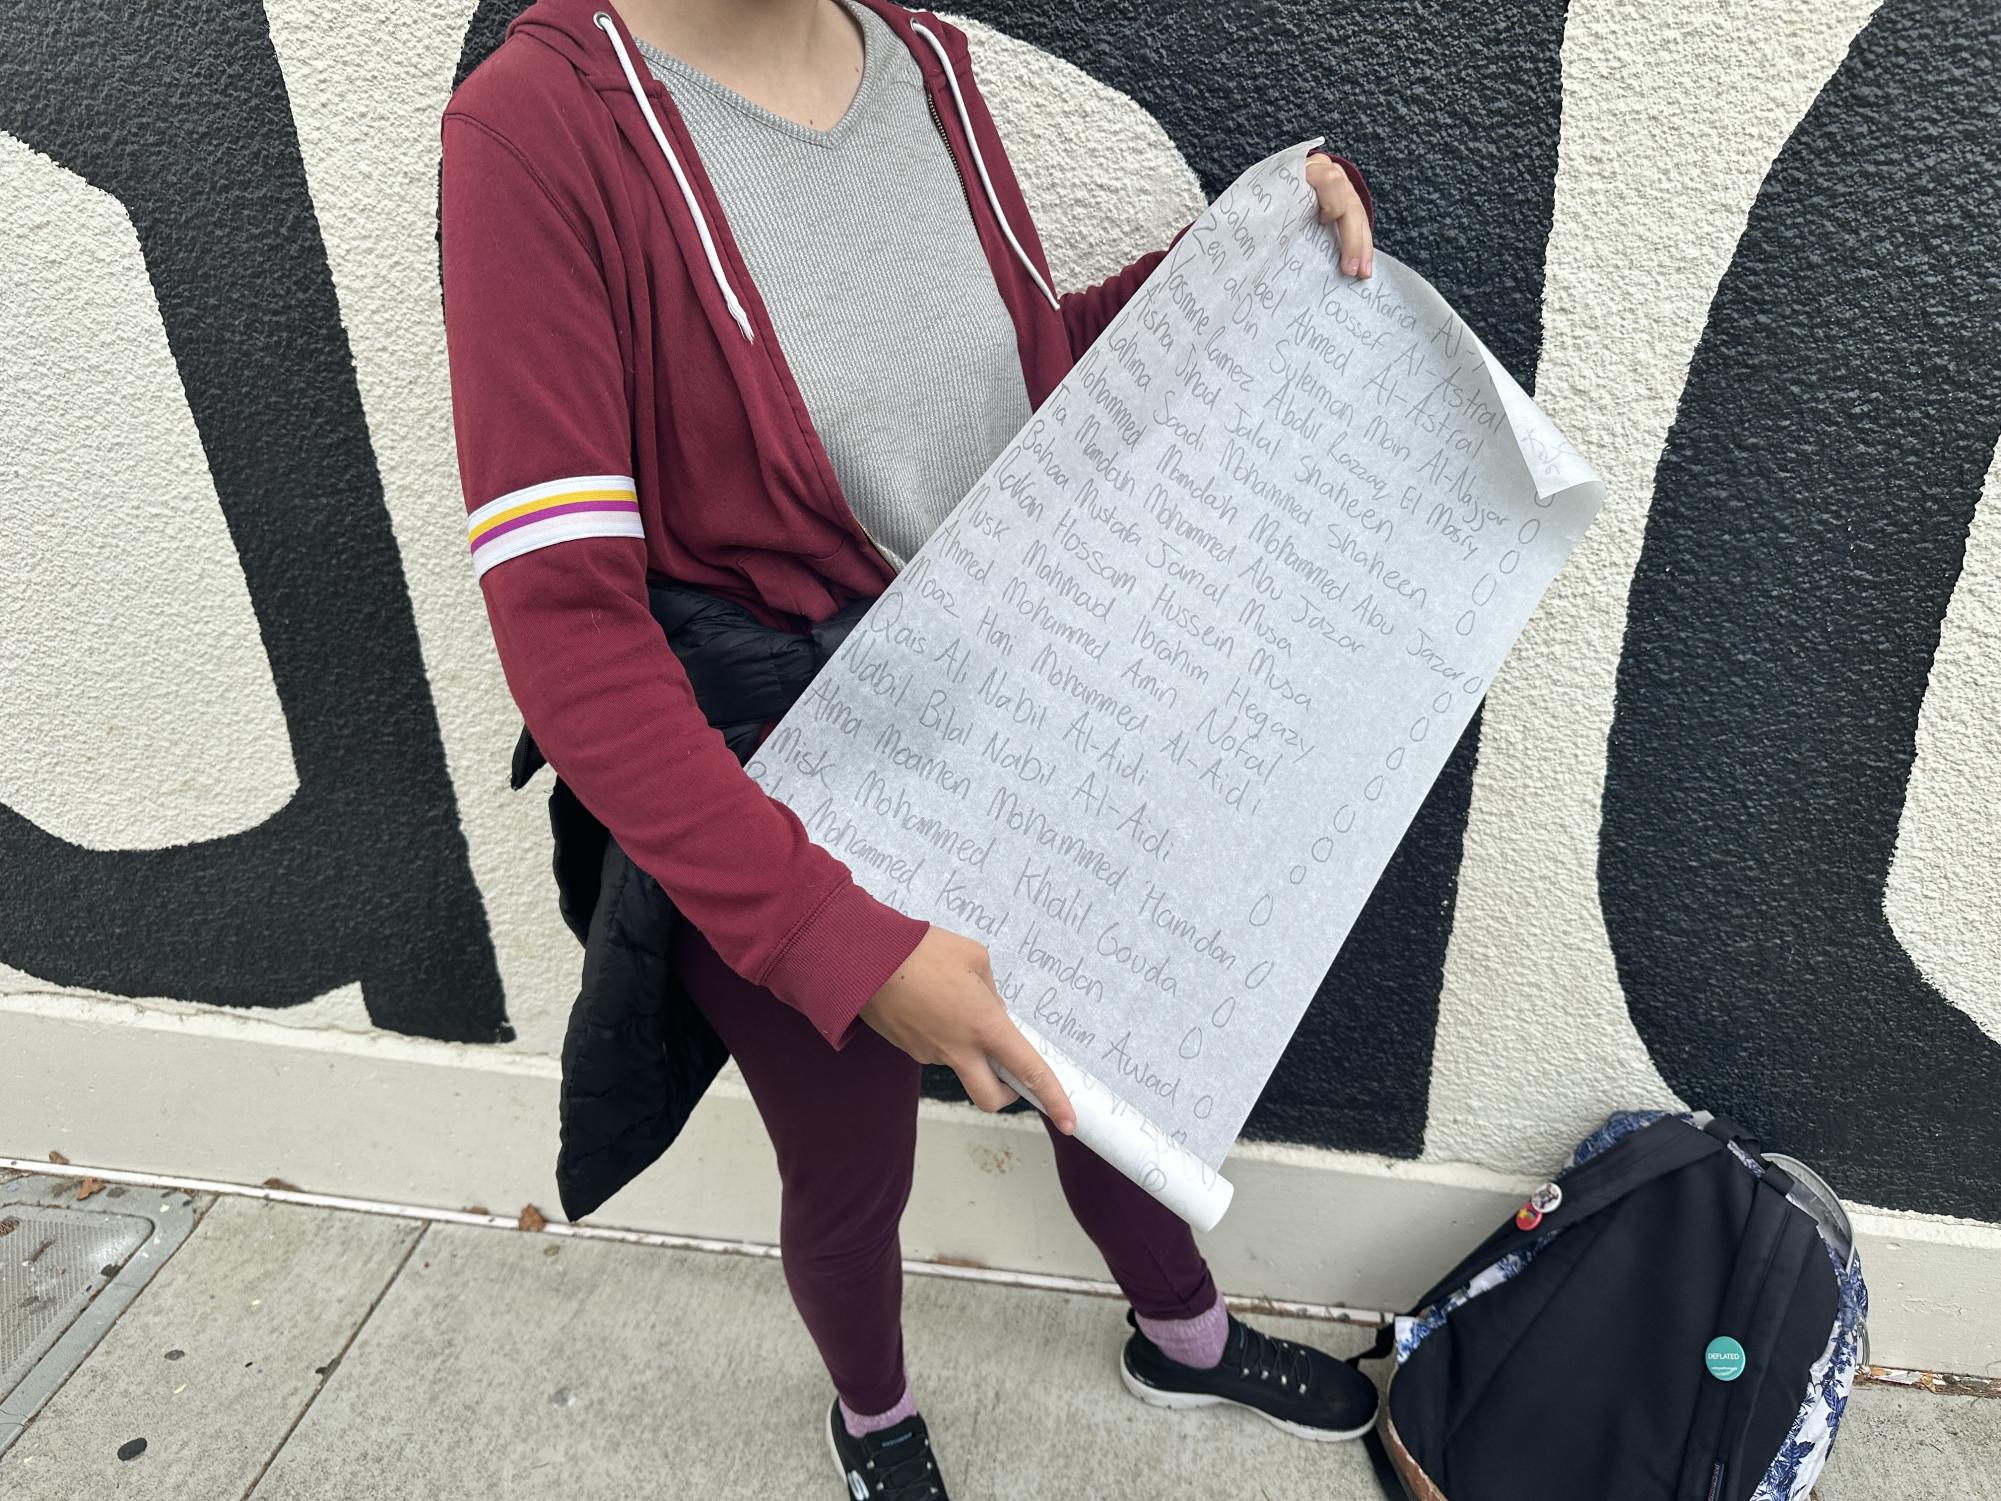 Zakaria Al-
Yahya Youssef Al-Astral
Salam Ahmed Al-Astral
Zen al-Din Suleiman Main Al-Najjar 0
Yasmine Ramez Abdul Razzaq El Masry 0
Aisha Jihad Jalal Shaheen 0
Rahma Saadi Mohammed Shaheen 0
Mohammed Mamdah Mohammed Abu Jazar 0
Tia Mamdah Mohammed Abu Jazar 0
Bahaa Mustafa Jamal Musa 0
Rakan Hossam Hussein Musa 0
Musk Mahmud Ibrahim Hegazy 0
Ahmed Mohammed Amin Nofal 0
Moaz Hani Mohammed Al-Aidi 0
Qais Ali Nabil Al-Aidi
Nabil Bilal Nabil Al-Aidi 0
Alma Moamen Mohammed Hamdan 0
Misk Mohammed Khalil Gouda 0
Mohammed Kamal Hamdan 0
Rahim Awad 0
0
DEFLATED